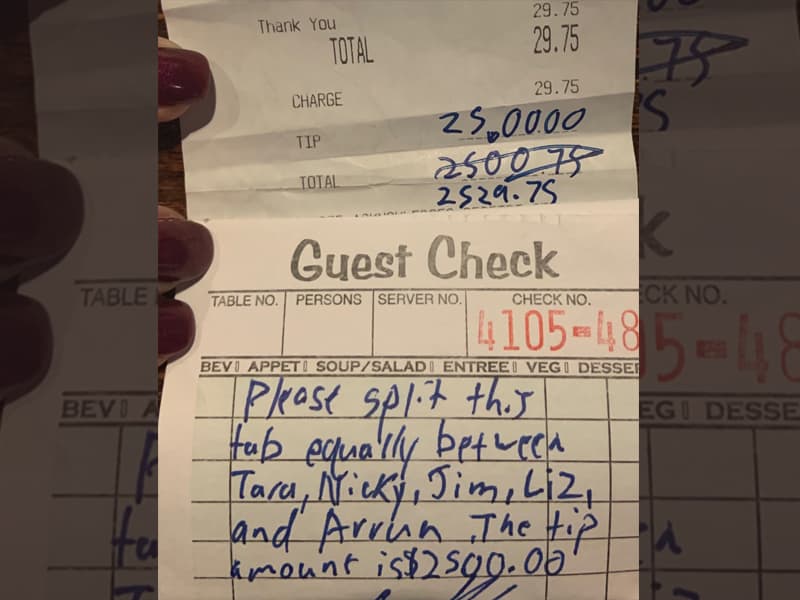 29.75
Thank You
TOTAL 29.75
CHARGE 29.75
TIP 25.0000
2500.75
TOTAL
2529.75
Guest Check
TABLE NO. PERSONS SERVER NO. CHECK NO.
4105-48
BEV APPET SOUP/SALAD ENTREE VEG DESSE
Please split this
tab equally between
Tara, Nicky, Jim, Liz,
and Arrun. The tip
amount is $2500.00